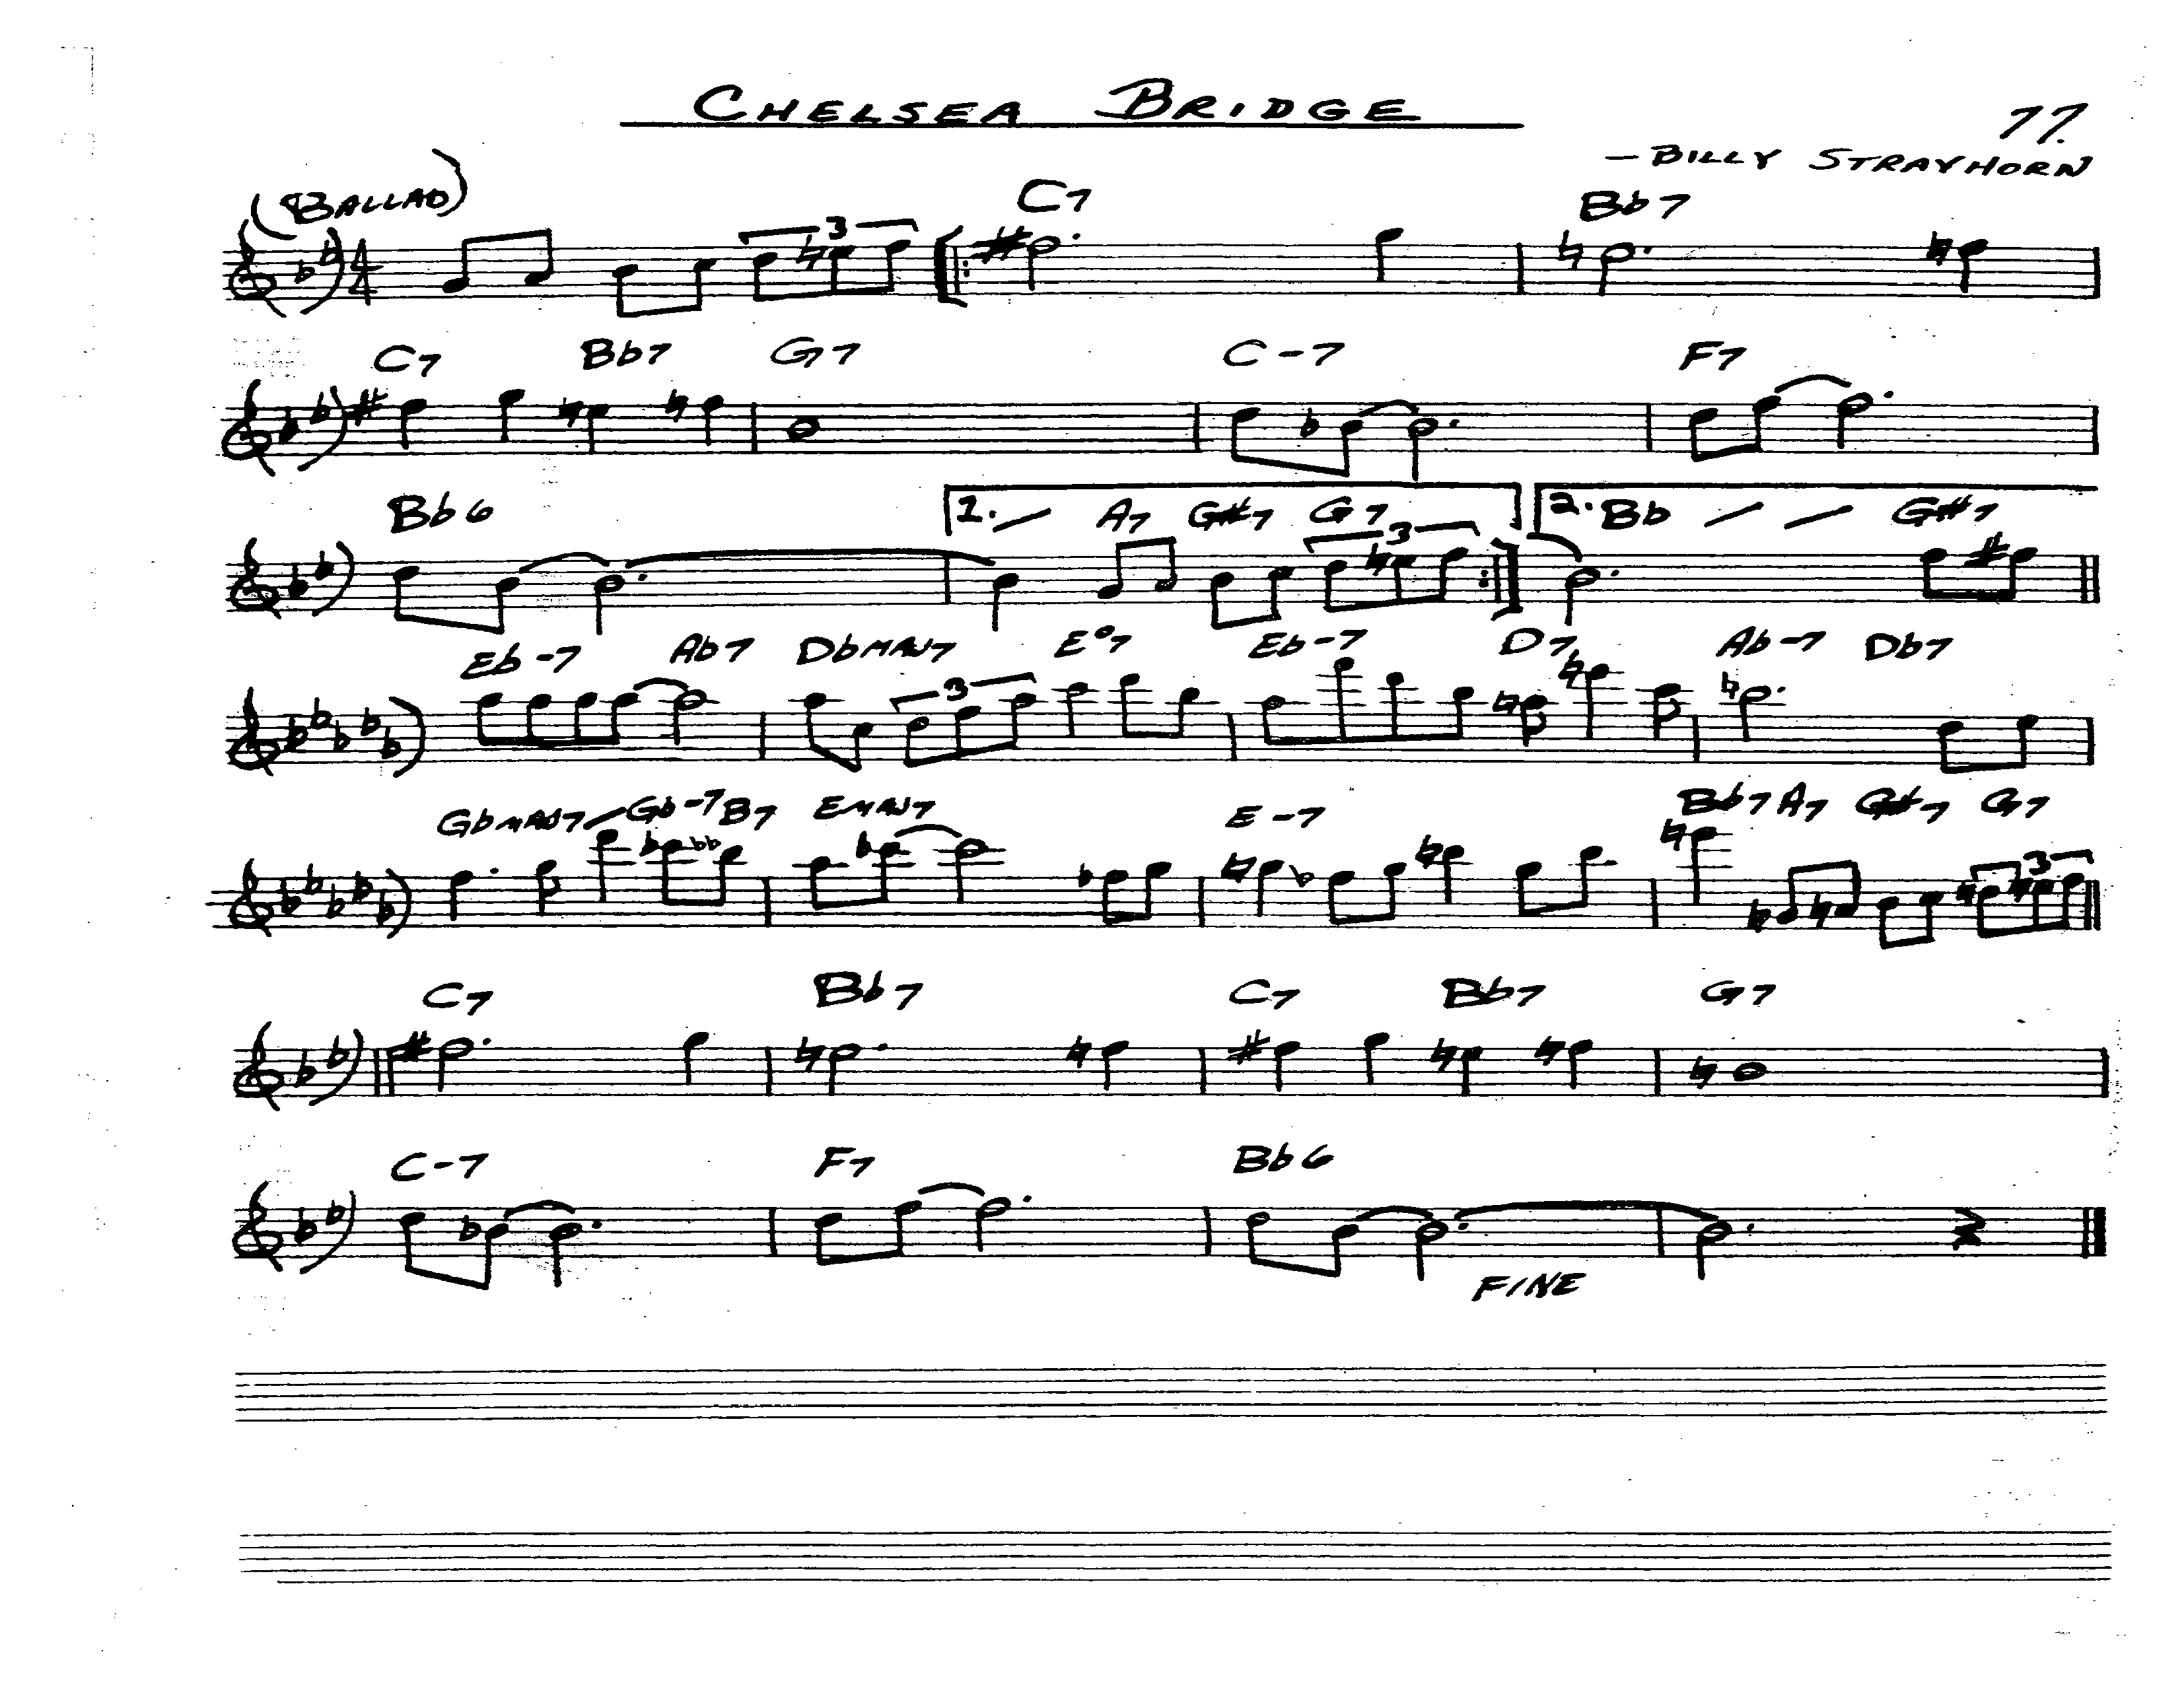 CHELSEA BRIDGE
77.
— BILLY STRAYHORN
(BALLAD) C7 Bb7
3
C7 Bb7 G7 C-7 F7
Bb6 1. / A7 G#7 G7 2. Bb / / G#7
3
Eb-7 Ab7 DbMAJ7 E°7 Eb-7 D7 Ab-7 Db7
3
GbMAJ7 / Gb-7 B7 EMAJ7 E-7 Bb7 A7 G#7 G7
3
C7 Bb7 C7 Bb7 G7
C-7 F7 Bb6
FINE